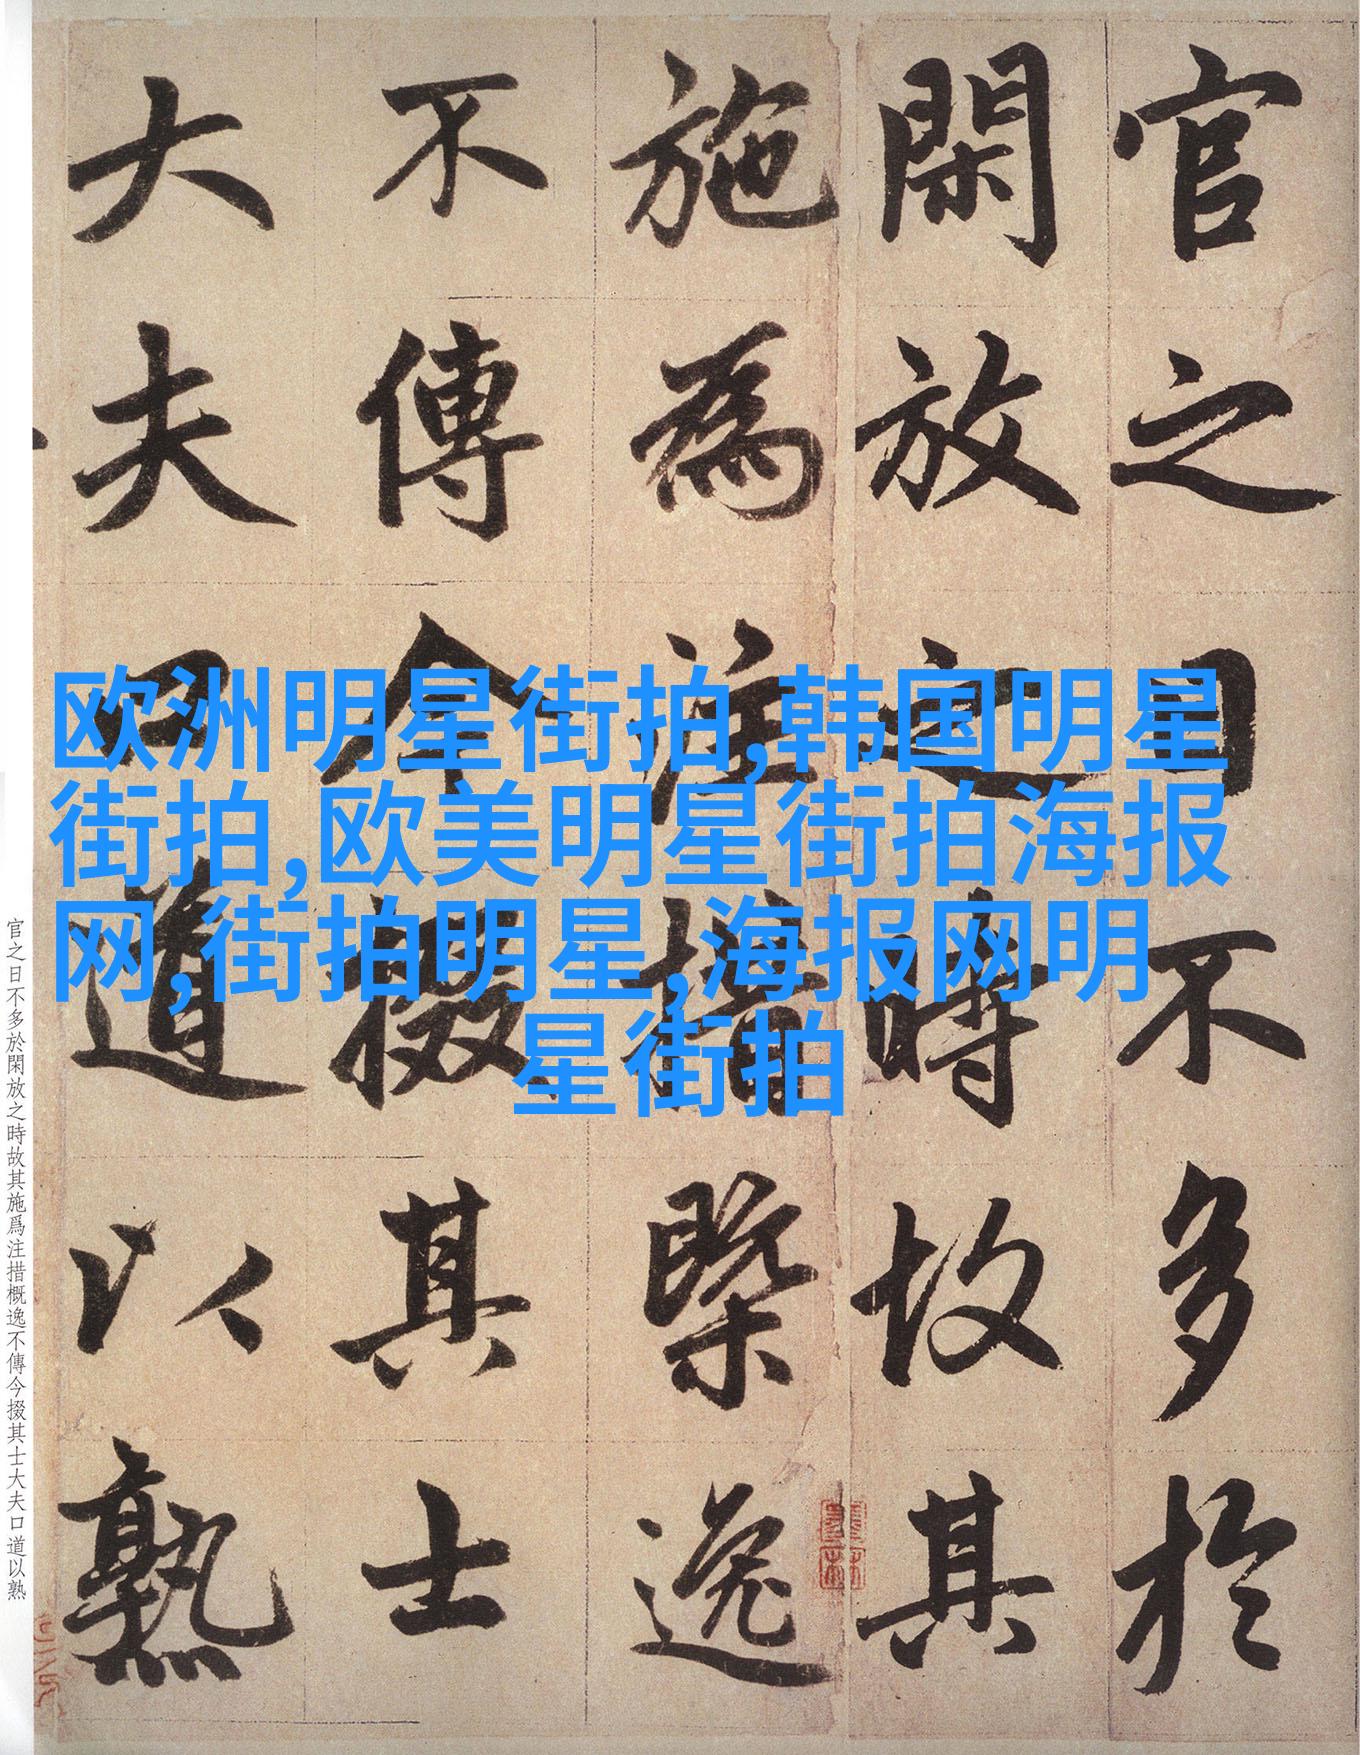 官之日不多於
閑放之時故其
施為注措槩逸
不傳今掇其士
大夫口道以熟
欧洲明星街拍,韩国明星
街拍,欧美明星街拍海报
网,街拍明星,海报网明
星街拍
官之日不多於閑放之時故其施爲注措概逸不傳今掇其士大夫口道以熟